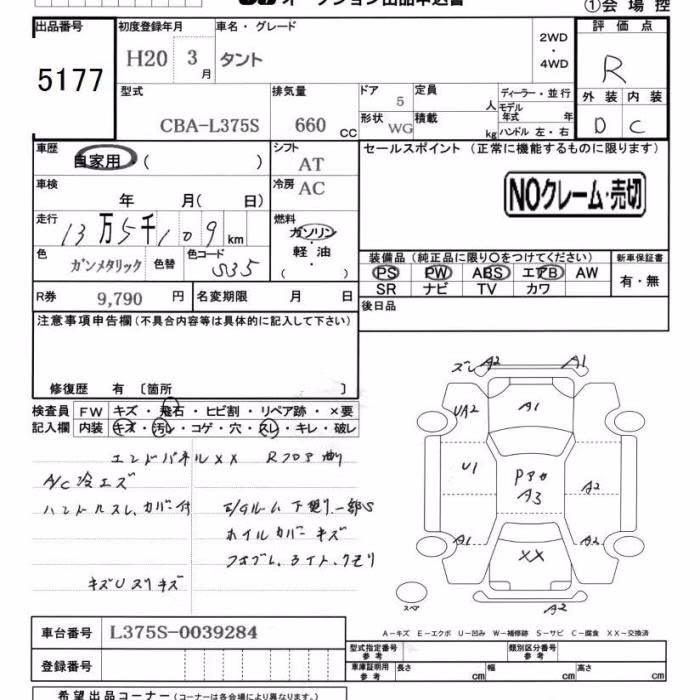 オークション出品申込書
①会場控
出品番号
5177
初度登録年月
H20 3月
車名・グレード
タント
2WD
・
4WD
評価点
R
外装 内装
D C
型式
CBA-L375S
排気量
660 CC
ドア
5
形状 WG
定員
人
積載
kg
ディーラー・並行
モデル年式 年
ハンドル 左・右
車歴
自家用 ( )
シフト
AT
車検
年 月( 日)
冷房 AC
走行
13万5千109km
燃料
ガソリン
軽油
( )
色
ガンメタリック
色替
色コード
S35
R券 9,790 円
名変期限 月 日
セールスポイント (正常に機能するものに限ります)
NOクレーム・売切
装備品(純正品に限り〇をつけてください)
PS PW ABS エアB AW
SR ナビ TV カワ
新車保証書
有・無
後日品
注意事項申告欄(不具合内容等は具体的に記入して下さい)
修復歴 有 〔箇所 〕
検査員 FW キズ・飛石・ヒビ割・リペア跡・×要
記入欄 内装 キズ・汚レ・コゲ・穴・スレ・キレ・破レ
エンドパネルXX Rフロア曲り
A/C冷エズ
ハンドルスレ、カバー付
E/Gルーム下廻り一部S
ホイルカバーキズ
フォグL、ライト、クモリ
キズUスリキズ
ズレ A2 A1
UA2 A1
U1 Pアカ A3 A2
A1 XX A2
スペア A2
A-キズ E-エクボ U-凹み W-補修跡 S-サビ C-腐食 XX-交換済
車台番号 L375S-0039284
登録番号
型式指定番号 参考
類別区分番号 参考
車庫証明用 参考 長さ cm 幅 cm 高さ cm
希望出品コーナー(コーナーは各会場により異なります。)